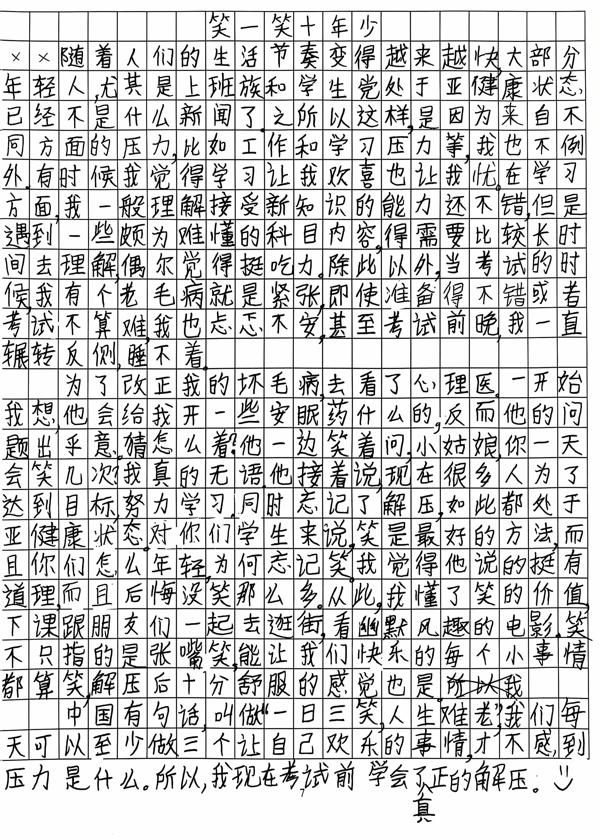 笑一笑十年少
××随着人们的生活节奏变得越来越快,大部分
年轻人,尤其是上班族和学生党处于亚健康状态,
已经不是什么新闻了。之所以这样,是因为来自不
同方面的压力,比如工作和学习压力等,我也不例
外。有时候我觉得学习让我欢喜也让我忧。在学习
方面,我一般理解接受新知识的能力还不错,但是
遇到一些颇为难懂的科目内容,得需要比较长时
间去理解,偶尔觉得挺吃力。除此以外,当考试的时
候,我有个老毛病就是紧张,即使准备得不错或者
考试不算难,我也忐忑不安,甚至考试前晚,我一直
辗转反侧,睡不着。
为了改正我的坏毛病,去看了心理医。一开始
我想,他会给我开一些安眠药什么的,反而他的问
题出乎意。猜怎么着?他一边笑着问,小姑娘,你一天
会笑几次?我真的无语,他接着说,现在很多人为了
达到目标,努力学习,同时忘记了解压,如此都处于
亚健康状态。对你们学生来说,笑是最好的方法,而
且你们怎么年轻,为何忘记笑。我觉得他说的挺有
道理,而且后悔没笑那么多。从此,我懂了笑的价值,
下课跟朋友们一起去逛街,看幽默风趣的电影。笑
不只指的是张嘴笑,能让我们快乐的每个小事情
都算笑,解压后十分舒服的感觉也是。所以我
中国有句话,叫做“一日三笑,人生难老”,我们每
天可以至少做三个让自己欢乐的事情,才不感到
压力是什么。所以,我现在考试前学会了真正的解压。